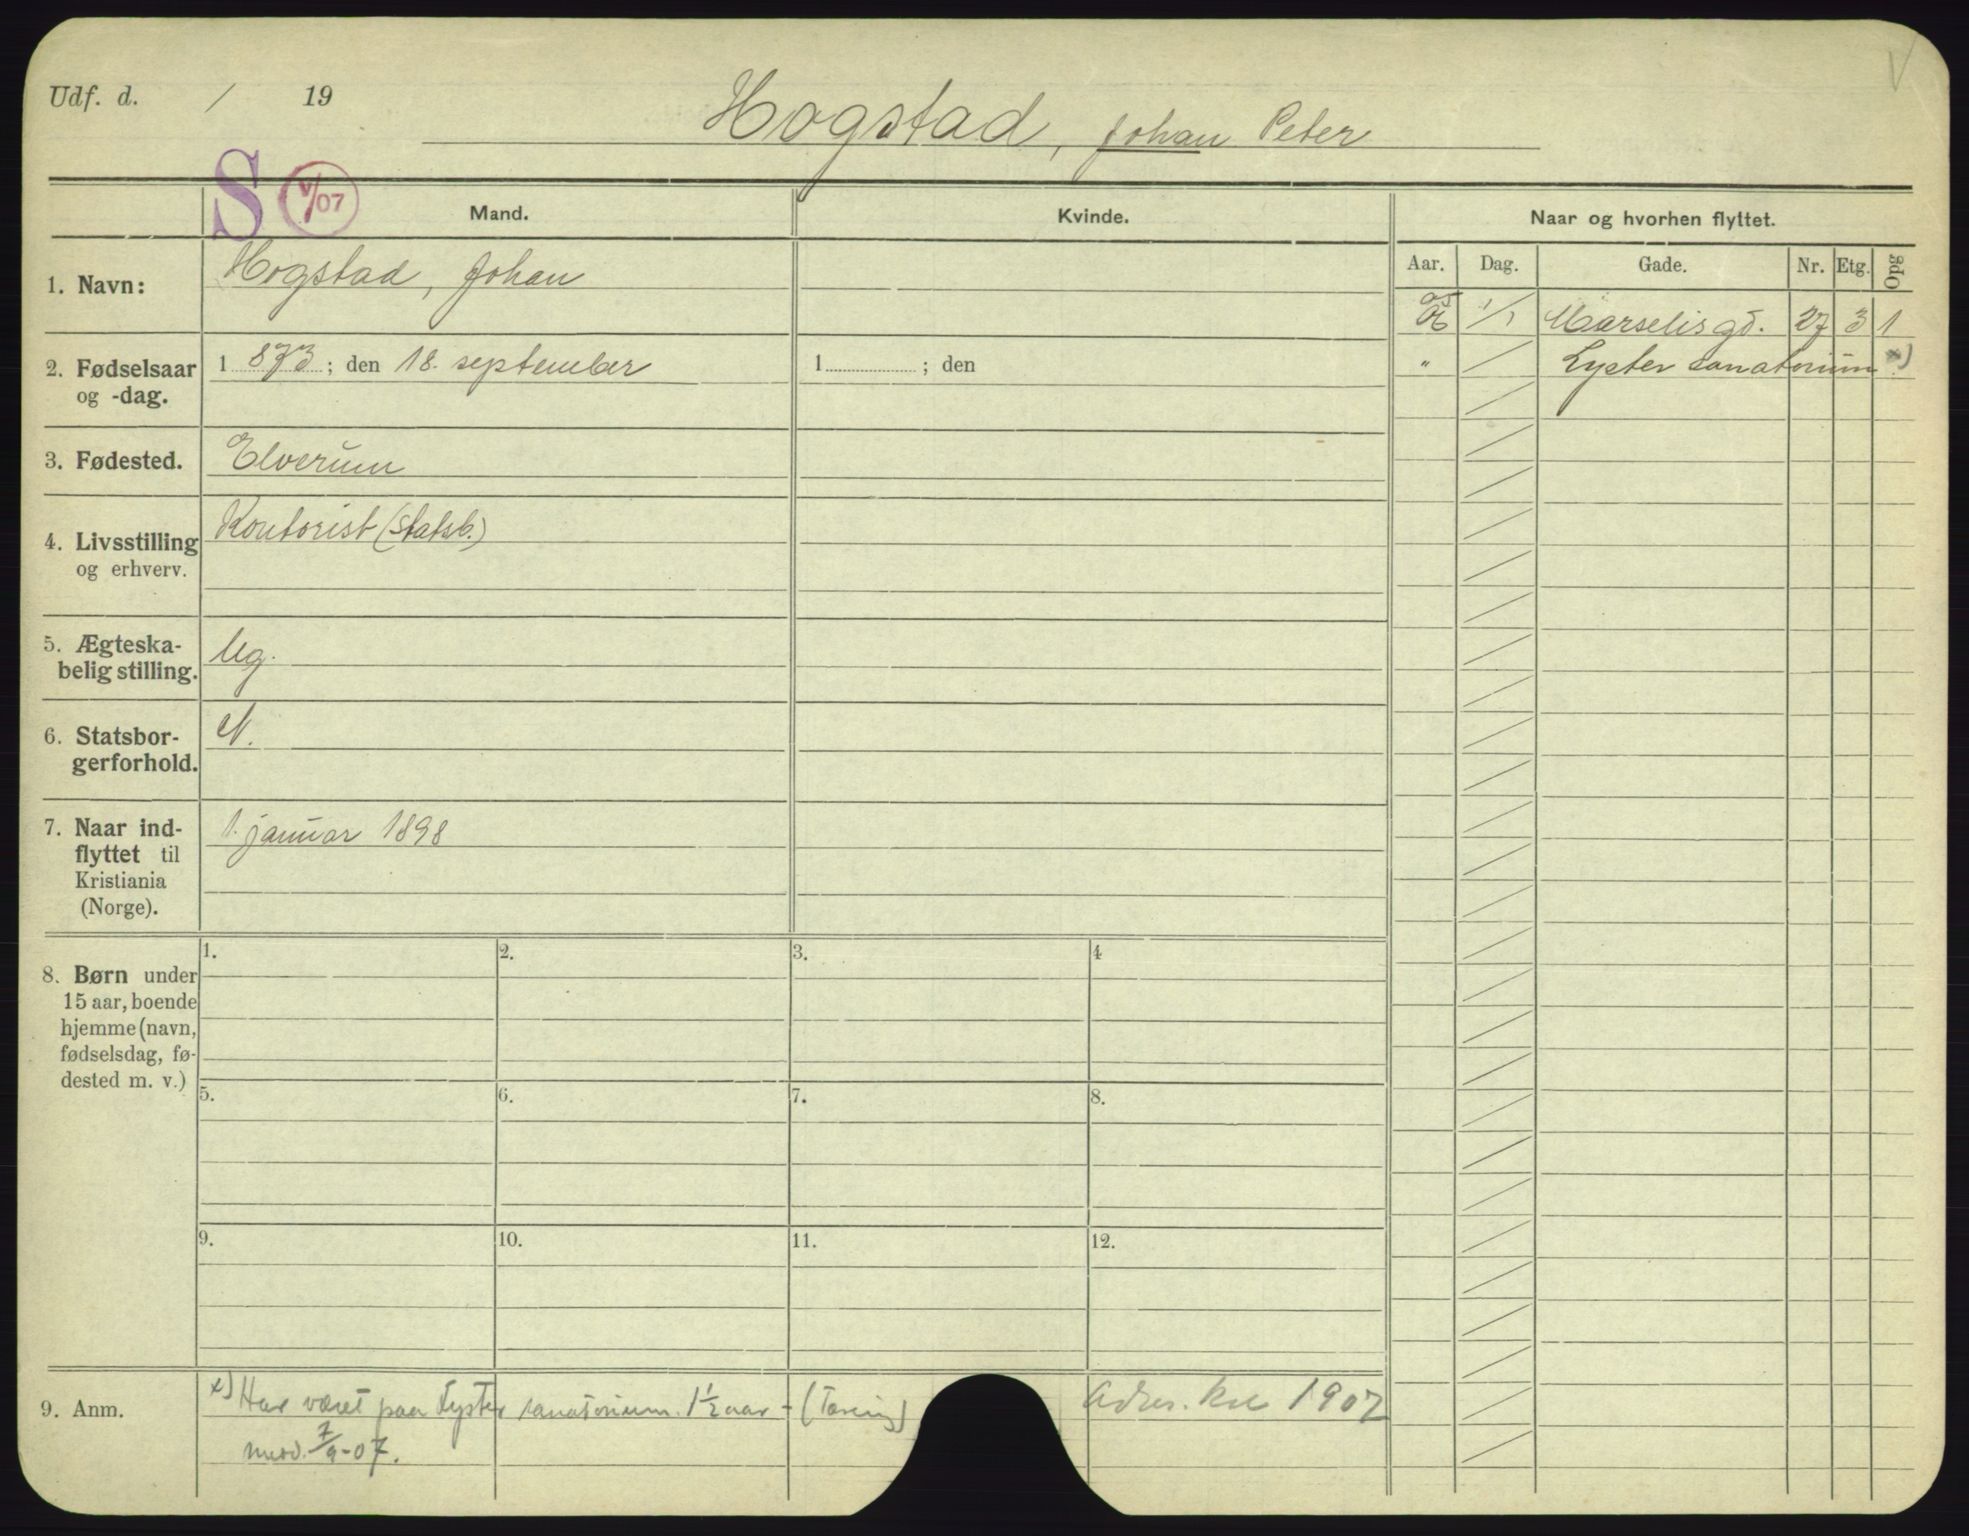 Udf. d. / 19
Hogstad, Johan Peter
V
S V/07
Mand.
Kvinde.
Naar og hvorhen flyttet.
Aar. Dag. Gade. Nr. Etg. Opg
1. Navn: Hogstad, Johan
1/1 Marselis gd. 27 3 1
" / Lyster sanatorium x)
2. Fødselsaar og -dag. 1 873 ; den 18. september
1 ; den
3. Fødested. Elverum
4. Livsstilling og erhverv. Kontorist (Statsb.)
5. Ægteska-
belig stilling. Ug.
6. Statsbor-
gerforhold. N.
7. Naar ind-
flyttet til
Kristiania
(Norge).
1. januar 1898
8. Børn under
15 aar, boende
hjemme (navn,
fødselsdag, fø-
dested m. v.)
1. 2. 3. 4
5. 6. 7. 8.
9. 10. 11. 12.
9. Anm. x) Har været paa Lyster sanatorium 1½ aar - (Tæring)
7/9-07.
1902